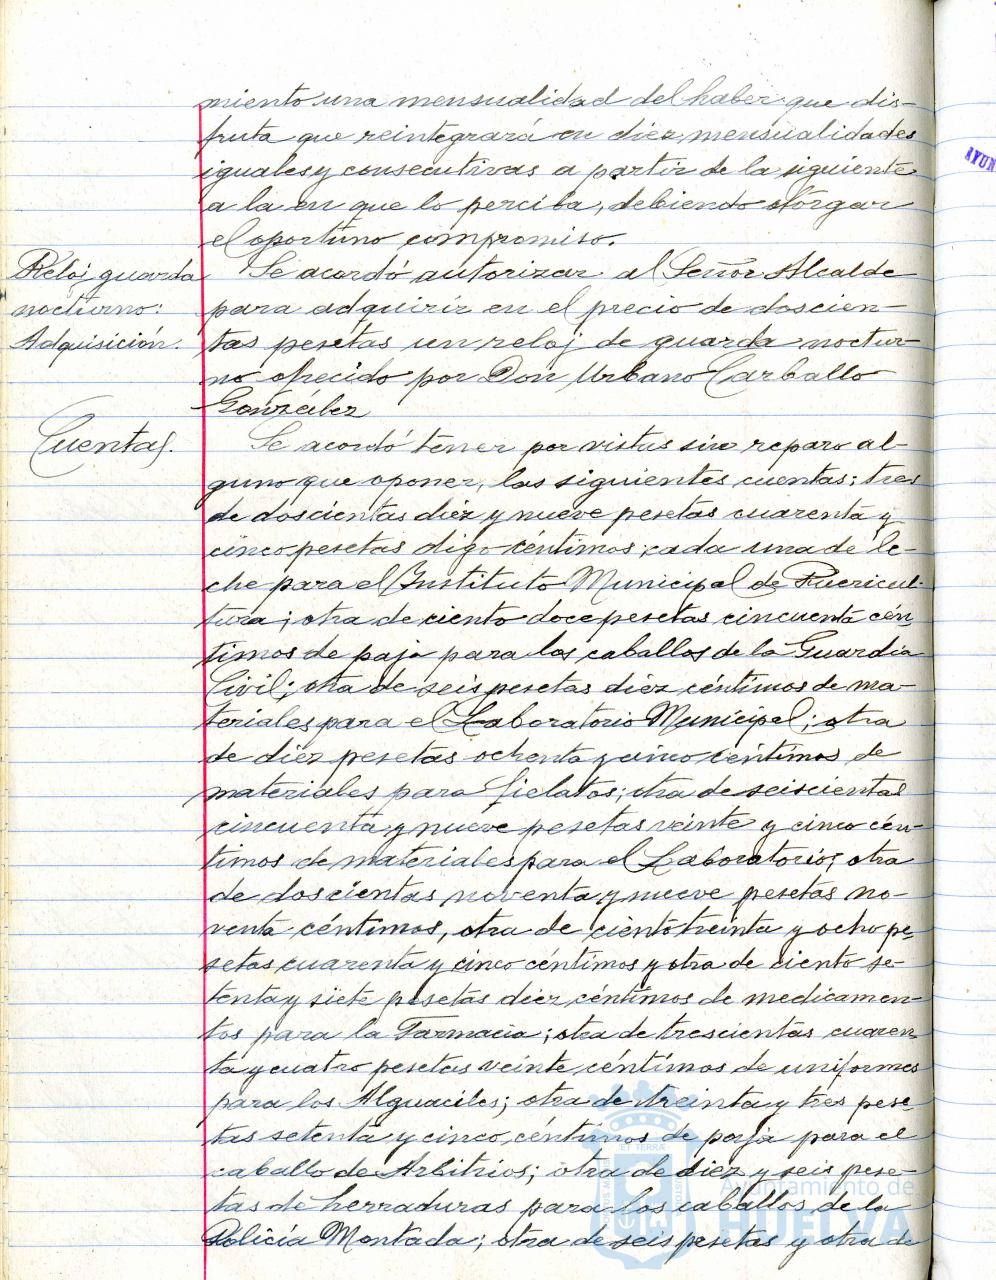 miento una mensualidad del haber que dis-
fruta que reintegrará en diez mensualidades
iguales y consecutivas a partir de la siguiente
a la en que lo perciba, debiendo otorgar
el oportuno compromiso.
Reloj guarda
nocturno:
Adquisición.
Se acordó autorizar al Señor Alcalde
para adquirir en el precio de doscien-
tas pesetas un reloj de guarda noctur-
no ofrecido por Don Urbano Carballo
González
Cuentas.
Se acordó tener por vistas sin reparo al-
guno que oponer, las siguientes cuentas; tres
de doscientas diez y nueve pesetas cuarenta y
cinco pesetas digo céntimos, cada una de le-
che para el Instituto Municipal de Puericul-
tura; otra de ciento doce pesetas cincuenta cén-
timos de paja para los caballos de la Guardia
Civil; otra de seis pesetas diez céntimos de ma-
teriales para el Laboratorio Municipal; otra
de diez pesetas ochenta y cinco céntimos de
materiales para fielatos; otra de seiscientas
cincuenta y nueve pesetas veinte y cinco cén-
timos de materiales para el Laboratorio; otra
de doscientas noventa y nueve pesetas no-
venta céntimos, otra de ciento treinta y ocho pe-
setas cuarenta y cinco céntimos y otra de ciento se-
tenta y siete pesetas diez céntimos de medicamen-
tos para la Farmacia; otra de trescientas cuaren-
ta y cuatro pesetas veinte céntimos de uniformes
para los Alguaciles; otra de treinta y tres pese-
tas setenta y cinco céntimos de paja para el
caballo de Arbitrios; otra de diez y seis pese-
tas de herraduras para los caballos de la
Policía Montada; otra de seis pesetas y otra de
AYUN
Ayuntamiento de
HUELVA